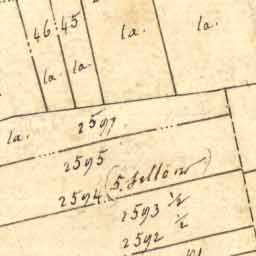 46 45
la. la.
la. la.
la. 2597.
2595
2594 (5. fellow)
2593 1/2
2592 1/2